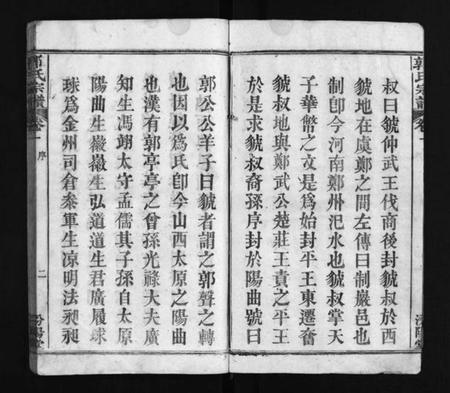 叔曰虢仲武王伐商後封虢叔於西
虢地在虞鄭之間左傳曰制嚴邑也
制卽今河南鄭州汜水也虢叔掌天
子華幣之文是爲始封平王東遷奮
虢叔地與鄭武公楚莊王責之平王
於是求虢叔裔孫序封於陽曲號曰
郭公公羊子曰虢者謂之郭聲之轉
也因以爲氏卽今山西太原之陽曲
也漢有郭亭亭之曾孫光祿大夫廣
知生馮翊太守孟儒其子孫自太原
陽曲生徽徽生弘道道生君廣履球
球爲金州司倉叅軍生凉明法昶昶
郭氏宗譜 卷一 序 二 汾陽堂
郭氏宗譜 卷